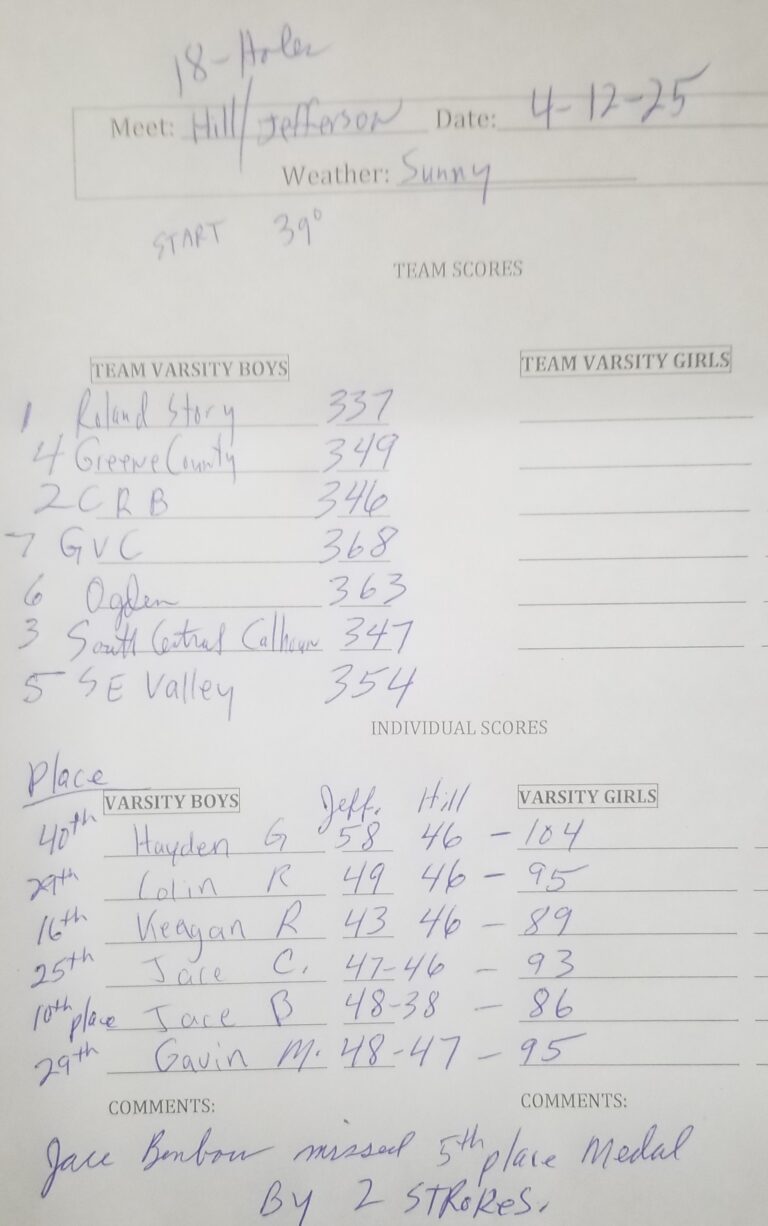 18-Holes
Meet: Hill/Jefferson Date: 4-12-25
Weather: Sunny
START 39°
TEAM SCORES
TEAM VARSITY BOYS TEAM VARSITY GIRLS
1 Roland Story 337
4 Greene County 349
2 C R B 346
7 GVC 368
6 Ogden 363
3 South Central Calhoun 347
5 SE Valley 354
INDIVIDUAL SCORES
Place
VARSITY BOYS Jeff. Hill VARSITY GIRLS
40th Hayden G 58 46 - 104
29th Colin R 49 46 - 95
16th Keagan R 43 46 - 89
25th Jace C. 47-46 - 93
10th place Jace B 48-38 - 86
29th Gavin M. 48-47 - 95
COMMENTS: COMMENTS:
Jace Benbow missed 5th place Medal
By 2 STROKES.